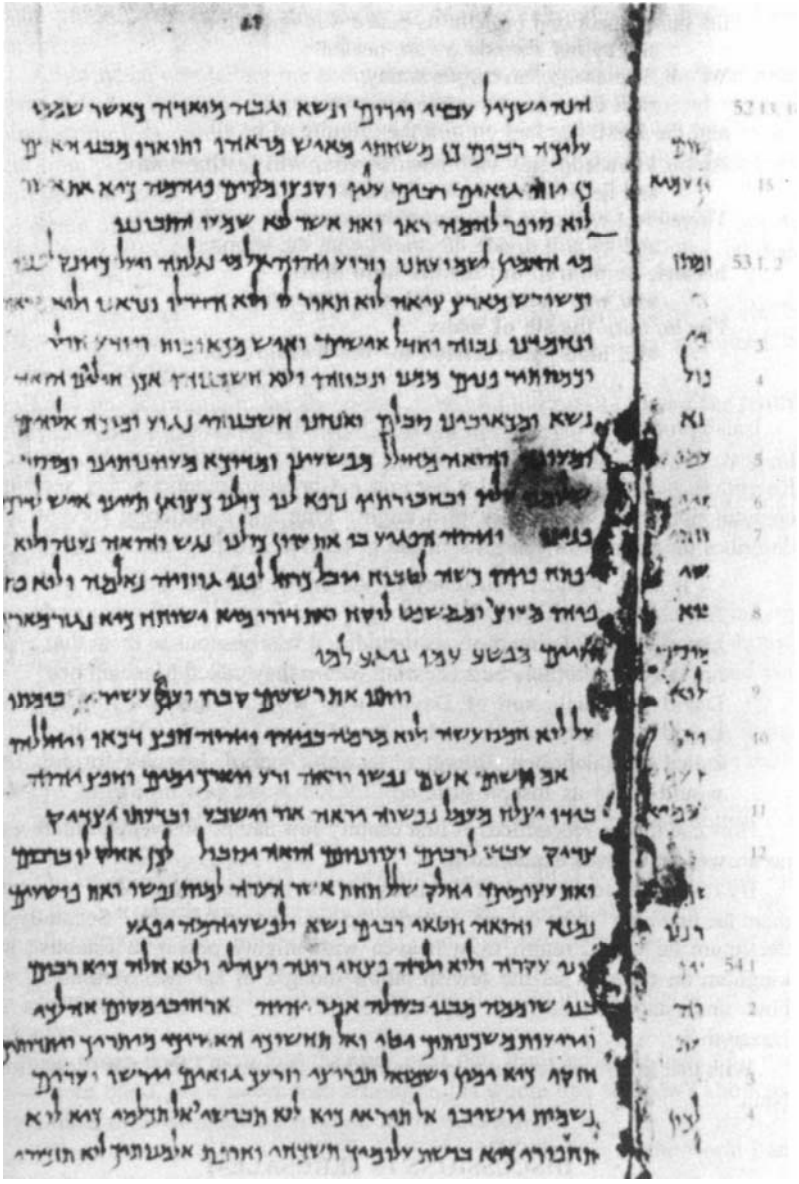 52 13, 14
הנה ישכיל עבדי וירום ונשא וגבה מואדה כאשר שממו
עליכה רבים כן משחתי מאיש מראהו ותוארו מבני האדם
15
כן יזה גואים רבים עליו וקפצו מלכים פיהמה כיא את אשר
לוא סופר להמה ראו ואת אשר לוא שמעו התבוננו
53 1, 2
מי האמין לשמועתנו וזרוע יהוה אל מי נגלתה ויעל כיונק לפניו
וכשורש מארץ ציה לוא תואר לו ולוא הדר לו ונראנו ולוא מראה
3
ונחמדנו נבזה וחדל אישים ואיש מכאובות ויודע חולי
4
וכמסתיר פנים ממנו ונבוזהו ולוא חשבנוהו אכן חוליינו הואה
נשא ומכאובינו סבלם ואנחנו חשבנוהו נגוע ומוכה אלוהים
5
ומעונה והואה מחולל מפשעינו ומדוכא מעוונותינו ומוסר
6
שלומנו עליו ובחבורתיו נרפא לנו כולנו כצואן תעינו איש לדרכו
7
פנינו ויהוה הפגיע בו את עוון כולנו נגש והואה נענה ולוא
יפתח פיהו כשה לטבוח יובל כרחל לפני גוזזיה נאלמה ולוא פתח
8
פיהו מעוצר וממשפט לוקח ואת דורו מיא ישוחח כיא נגזר מארץ
חיים מפשע עמו נוגע למו
9
ויתנו את רשעים קברו ועם עשיר בומתו
10
על לוא חמס עשה ולוא מרמה בפיהו ויהוה חפץ דכאו ויחללהו
אם תשים אשם נפשו יראה זרע ויארך ימים וחפץ יהוה
11
בידו יצלח מעמל נפשוה יראה אור וישבע ובדעתו יצדיק
12
צדיק עבדו לרבים ועוונותם הואה יסבול לכן אחלק לו ברבים
ואת עצומים יחלק שלל תחת אשר הערה למות נפשו ואת פושעים
נמנא והואה חטאי רבים נשא ולפשעיהמה יפגע
54 1
רני עקרה ולוא ילדה פצחי רונה וצהלי ולוא חלה כיא רבים
בני שוממה מבני בעולה אמר יהוה ארחיבי מקום אהלך
ויריעות משכנותיך יטי ואל תחשוכי האריכי מיתריך ויתדותיך
3
חזקי כיא ימין ושמאול תפרוצי וזרעך גואים יירש וערים
4
נשמות יושיבו אל תיראי כיא לוא תבושי ואל תכלמי כיא לוא
תחפורי כיא בושת עלומיך תשכחי וחרפת אלמנותיך לוא תזכורי